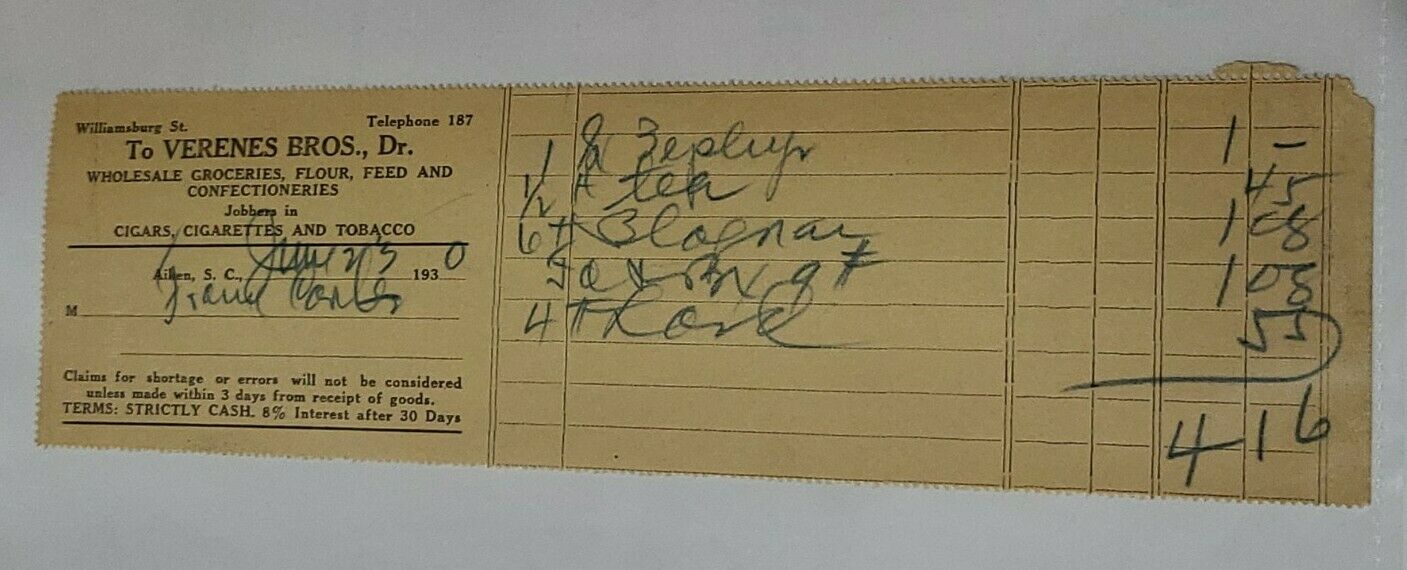 Williamsburg St. Telephone 187
To VERENES BROS., Dr.
WHOLESALE GROCERIES, FLOUR, FEED AND
CONFECTIONERIES
Jobbers in
CIGARS, CIGARETTES AND TOBACCO
Aiken, S. C., June 23 1930
M
Claims for shortage or errors will not be considered
unless made within 3 days from receipt of goods.
TERMS: STRICTLY CASH. 8% Interest after 30 Days
1 Zephyr 1 –
1/2 # tea 45
6 # 1 08
9 # 1 08
4 # 55
4 16